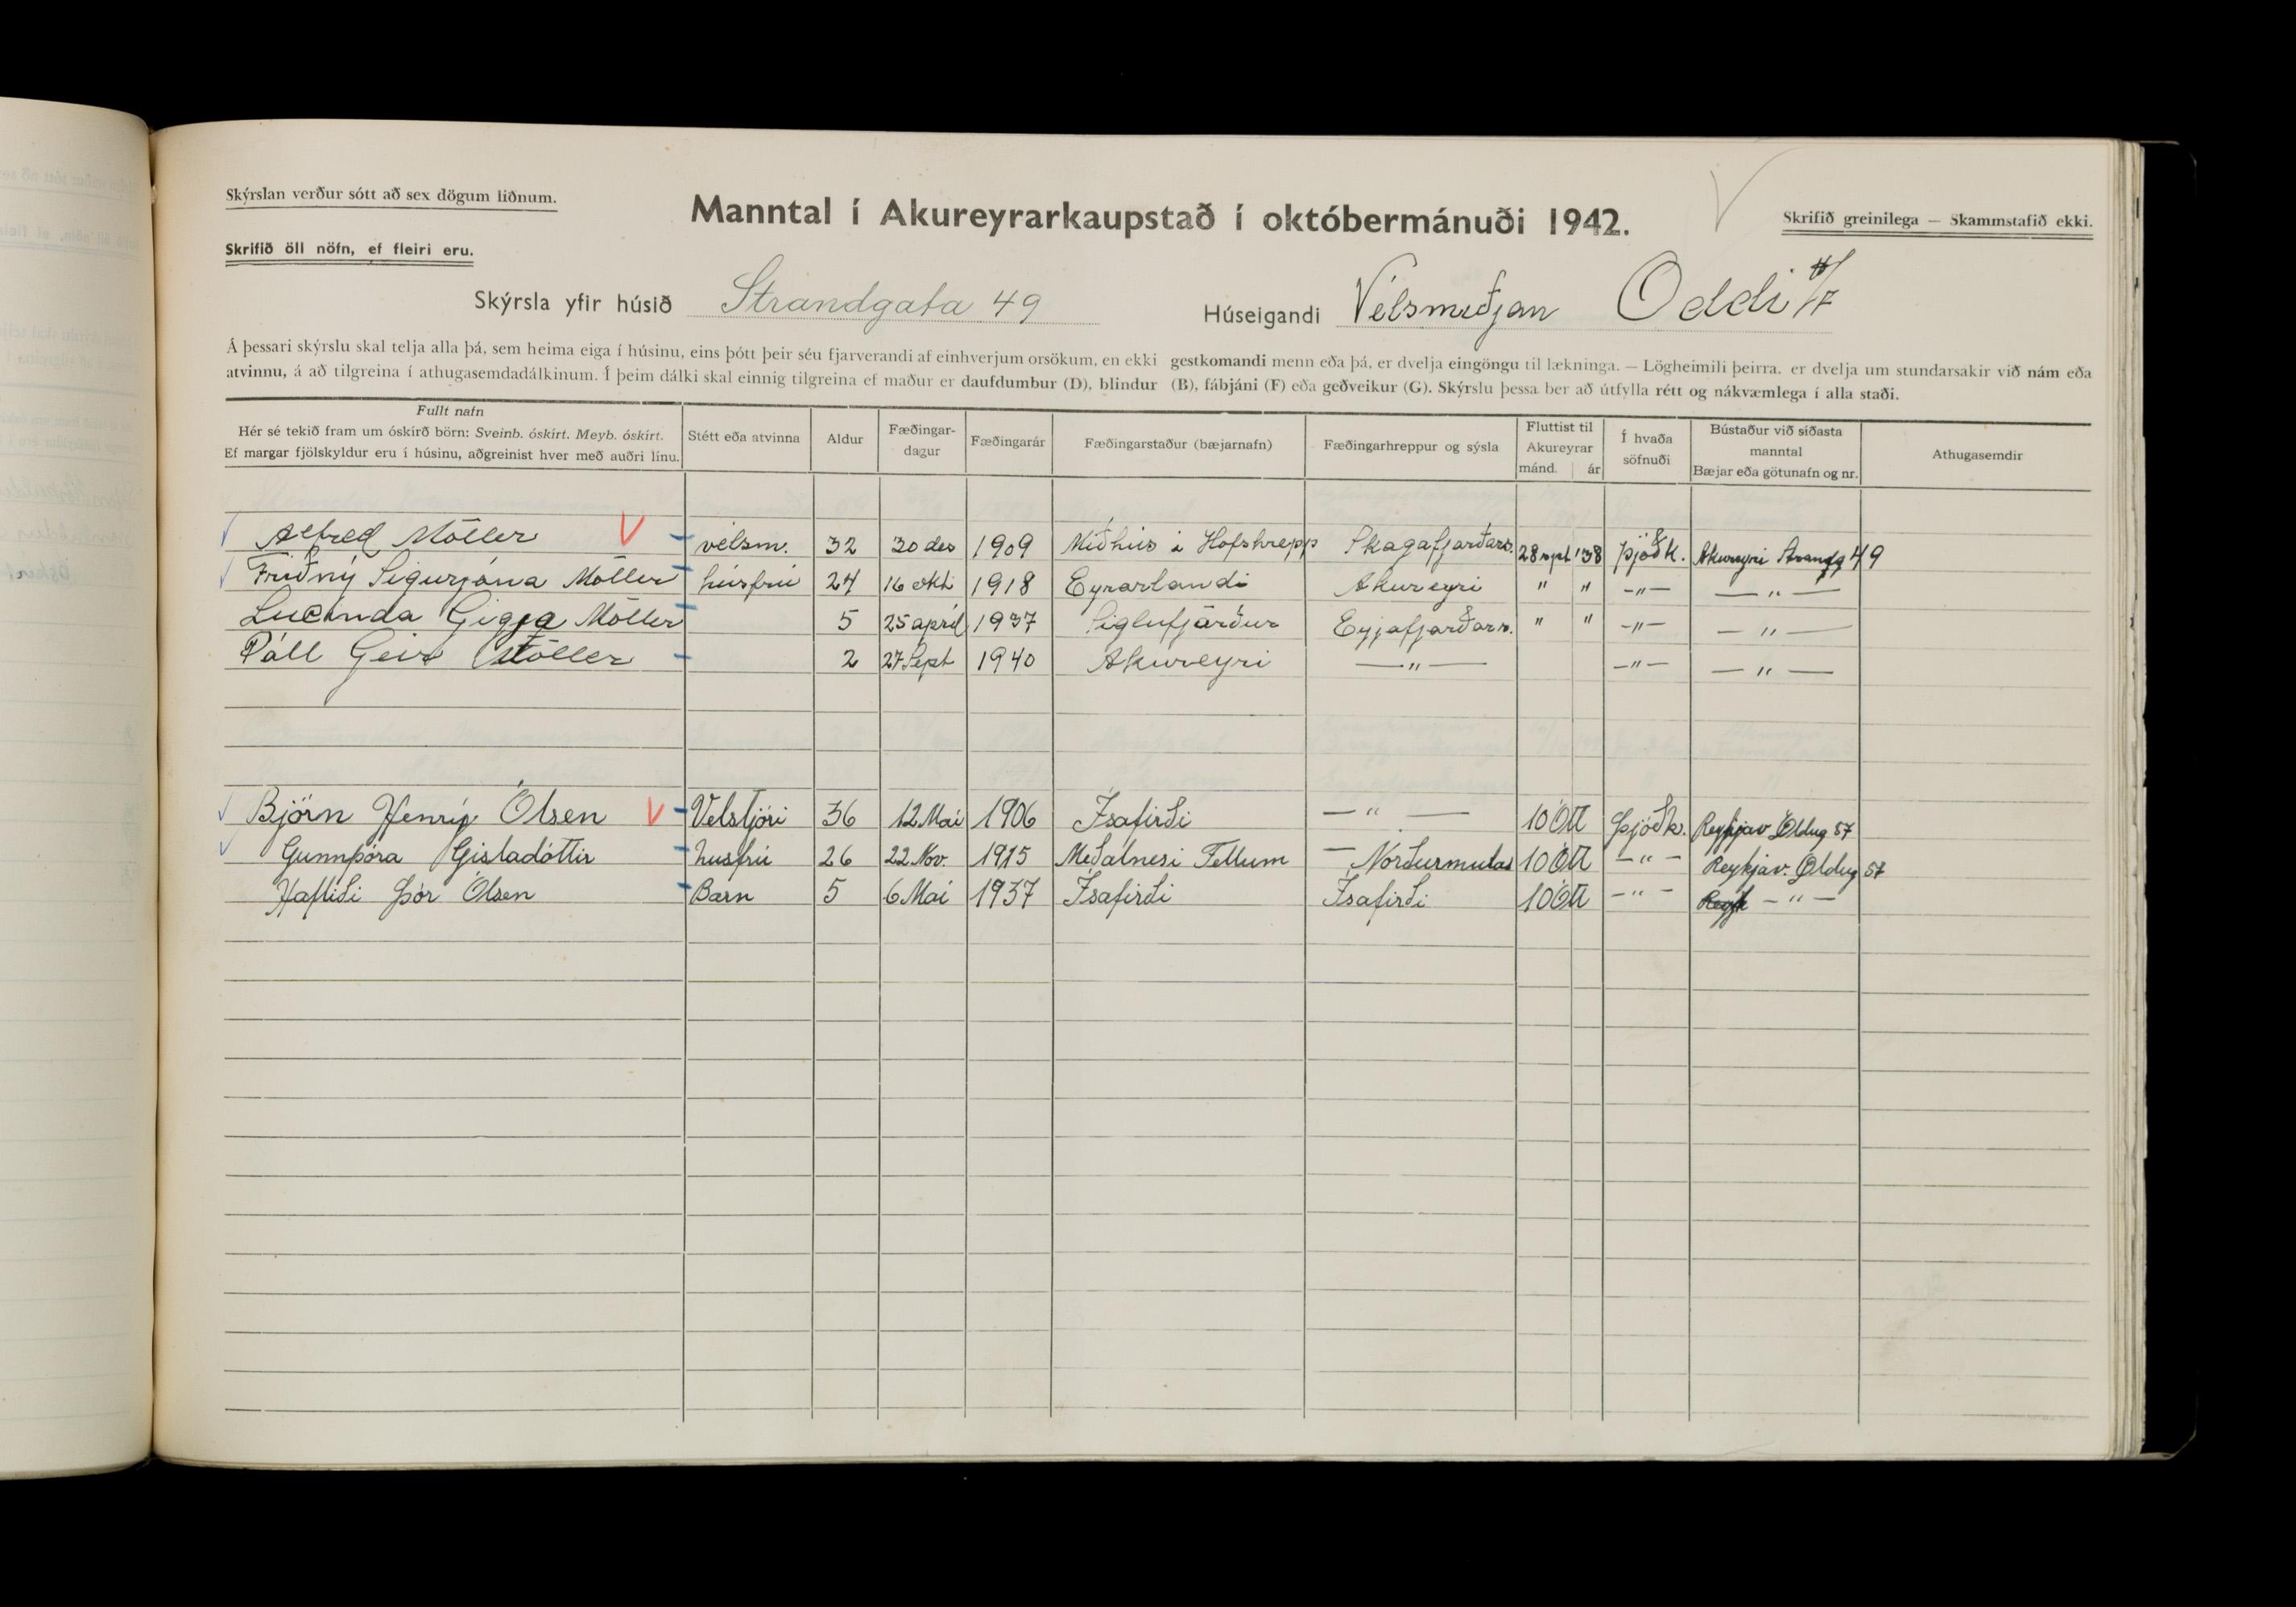 Skýrslan verður sótt að sex dögum liðnum.
Manntal í Akureyrarkaupstað í októbermánuði 1942.
Skrifið greinilega — Skammstafið ekki.
Skrifið öll nöfn, ef fleiri eru.
Skýrsla yfir húsið Strandgata 49 Húseigandi Vélsmiðjan Oddi H/F
Á þessari skýrslu skal telja alla þá, sem heima eiga í húsinu, eins þótt þeir séu fjarverandi af einhverjum orsökum, en ekki gestkomandi menn eða þá, er dvelja eingöngu til lækninga. — Lögheimili þeirra, er dvelja um stundarsakir við nám eða
atvinnu, á að tilgreina í athugasemdadálkinum. Í þeim dálki skal einnig tilgreina ef maður er daufdumbur (D), blindur (B), fábjáni (F) eða geðveikur (G). Skýrslu þessa ber að útfylla rétt og nákvæmlega í alla staði.
Fullt nafn
Hér sé tekið fram um óskírð börn: Sveinb. óskírt. Meyb. óskírt.
Ef margar fjölskyldur eru í húsinu, aðgreinist hver með auðri línu.
Stétt eða atvinna
Aldur
Fæðingar-
dagur
Fæðingarár
Fæðingarstaður (bæjarnafn)
Fæðingarhreppur og sýsla
Fluttist til
Akureyrar
mánd. ár
Í hvaða
söfnuði
Bústaður við síðasta
manntal
Bæjar eða götunafn og nr.
Athugasemdir
Alfred Möller vélsm. 32 30 des 1909 Miðhús i Hofshrepp Skagafjarðars. 28 sept '38 þjóðk. Akureyri Strandg 49
Friðný Sigurjóna Möller húsfrú 24 16 okt 1918 Eyrarlandi Akureyri " " -"- -"-
Lucinda Gigja Möller 5 25 april 1937 Siglufjörður Eyjafjarðars. " " -"- -"-
Páll Geir Möller 2 27 Sept 1940 Akureyri -"- -"- -"-
Björn Henrý Ólsen Velstjóri 36 12 Mai 1906 Ísafirði -"- 10 Okt Þjóðk. Reykjav Öldug 57
Gunnþóra Gisladóttir husfrú 26 22 Nov. 1915 Meðalnesi Fellum - Norðurmulas 10 Okt -"- Reykjav. Öldug 57
Hafliði Þór Ólsen Barn 5 6 Mai 1937 Ísafirði Ísafirði 10 Okt -"- -"-